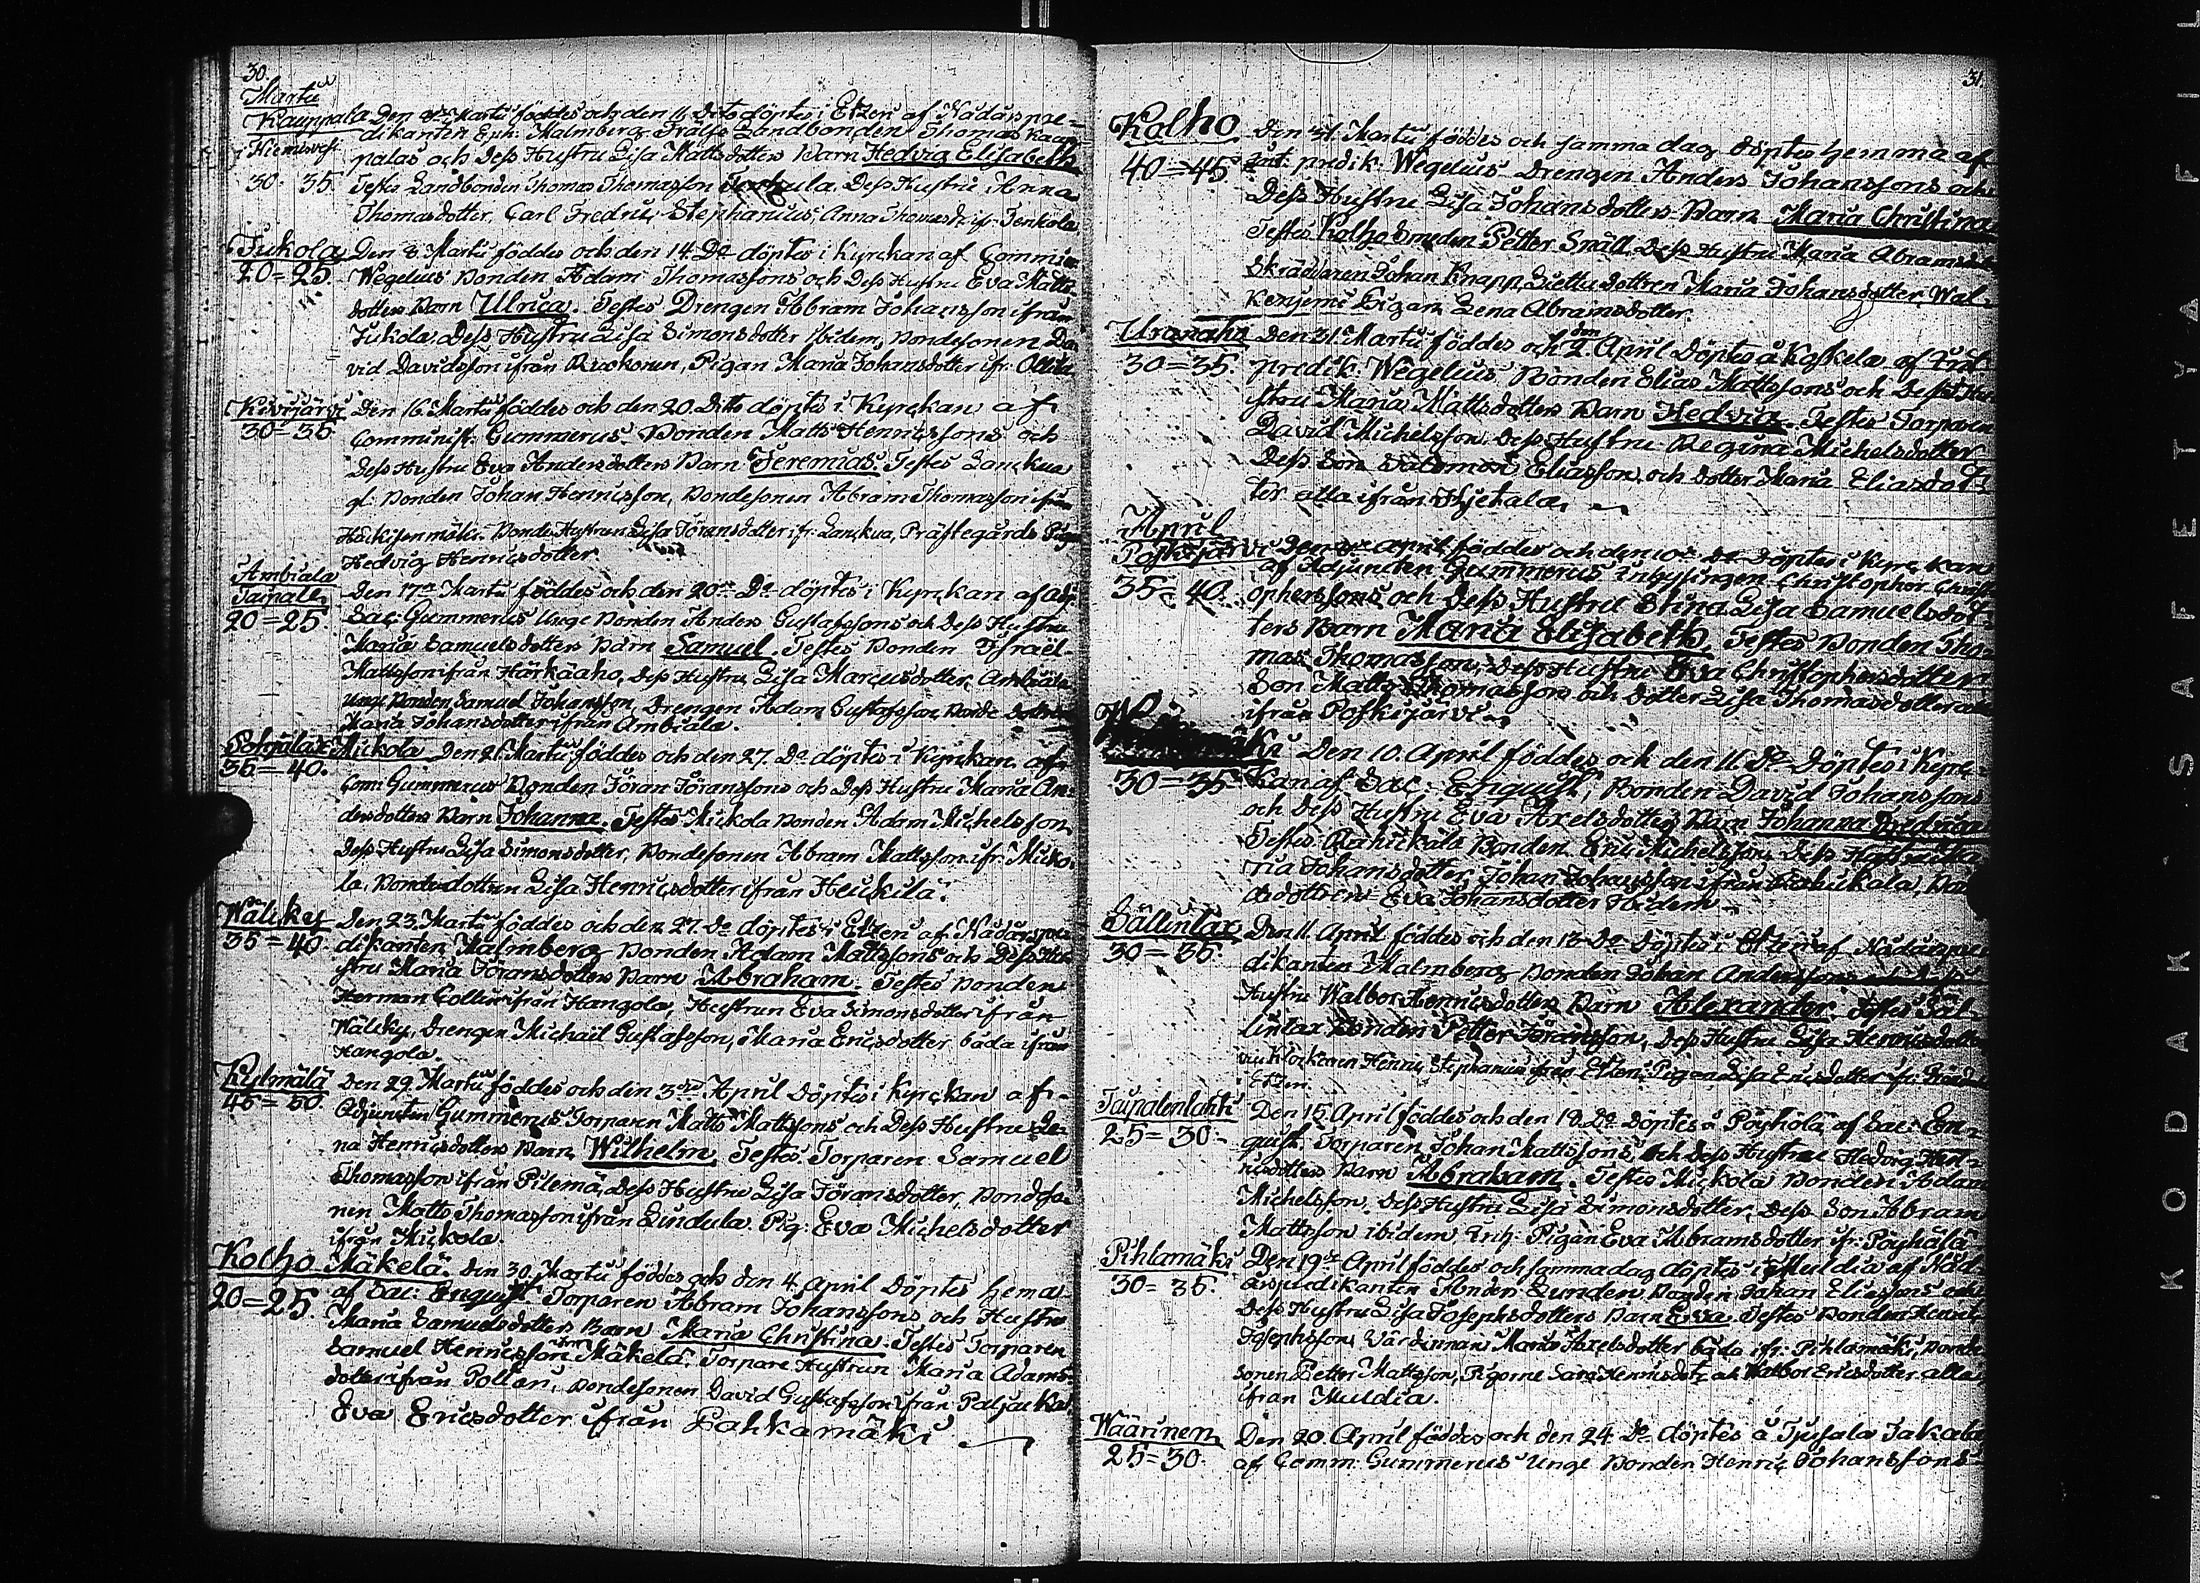 30.
Martii
Kauppala Den Martii föddes och den 11 Dito döptes i Etzeri af Nådårspre=
i Hiemivesi dikanten Eph: Malmberg Frälse Landbonden Thomas Kaup
palas och Dess Hustru Lisa Matts dotters Barn Hedvig Elisabeth
30=35. Testes Landbonden Thomas Thomasson Dess Hustru Anna
Thomasdotter, Carl Fredric Stephanius, Anna
Jukola Den 8. Martii föddes och den 14. Do döptes i Kyrckan af Commin
20=25. Wegelius Bonden Adam Thomassons och Dess Hustru Eva Matts
dotters Barn Ulrica. Testes Drengen Abram Johansson ifrån
Jukola, Dess Hustru Lisa Simonsdotter ibidem, Bondesonen Da
vid Davidsson ifrån Ruokonen, Pigan Maria Johansdotter ifr:
Kivijärvi Den 16. Martii föddes och den 20. Ditto döptes i Kyrckan af
30=35 Comminist. Gummerus Bonden Matts Henricssons och
Dess Hustru Eva Andersdotters Barn Jeremias. Testes
gl. Bonden Johan Henricsson, Bondesonen Abram Thomasson ifrån
Bonde Hustrun Lisa Jöransdotter ifr: Prästegårds Pigan
Hedvig Henricsdotter
Ambiala
Taipale Den 17de Martii föddes och den 20de Do döptes i Kyrckan af
20=25 Sac: Gummerus Unge Bonden Anders Gustafssons och Dess Hustru
Maria Samuelsdotters Barn Samuel. Testes Bonden Israel
Mattsson ifrån Härkäaho, Dess Hustru Lisa Marcusdotter, Ambiala
unge Bonden Samuel Johansson, Drengen Adam Gustafsson, Bonde
Maria Johansdotter ifrån Ambiala.
Mickola Den 26 Martii föddes och den 27. Do döptes i Kyrckan af
35=40. Com: Gummerus Bonden Jöran Jöranssons och Dess Hustru Maria An
dersdotters Barn Johanna. Testes Mickola Bonden Adam Michelsson
Dess Hustru Lisa Simonsdotter, Bondesonen Abram Mattsson ifr: Micko
la, Bondedottren Lisa Henricsdotter ifrån Heickilä.
Wälikey Den 23. Martii föddes och den 27. Do döptes i Etzeri af Nådårspre
35=40 dikanten Malmberg Bonden Adam Mattssons och Dess Hu
stru Maria Jöransdotters Barn Abraham. Testes Bonden
Herman ifrån Hangola, Hustrun Eva Simonsdotter ifrån
Wälikey, Drengen Michaël Gustafsson, Maria Ericsdotter båda ifrån
Hangola.
Kylmälä Den 29. Martii föddes och den 3die April Döptes i Kyrckan af
45=50. Adjuncten Gummerus Torparen Matts Mattssons och Dess Hustru Le
na Henricsdotters Barn Wilhelm. Testes. Torparen Samuel
Thomasson ifrån Pilemä, Dess Hustru Lisa Jöransdotter, Bondeso
nen Matts Thomasson ifrån Lindula. Pig: Eva Michelsdotter
ifrån Mickola.
Kolho Mäkelä Den 30. Martii föddes och den 4. April Döptes hema
20=25. af Sac: Enquist Torparen Abram Johanssons och Hustru
Maria Samuelsdotters Barn Maria Christina. Testes Torparen
Samuel Henricsson ifrån Mäkelä, Torpare Hustrun Maria Adams-
dotter ifrån Pollari, Bondesonen David Gustafsson ifrån
Eva Ericsdotter ifrån Pahkamäki
31.
Kolho Den 31. Martii föddes och samma dag döptes hemma af
40=45. predik. Wegelius Drengen Anders Johanssons och
Dess Hustru Lisa Johansdotters Barn Maria Christina
Testes Kolho Smeden Petter Snäll, Dess Hustru Maria Abrams
Skräddaren Johan Knapp, dottren Maria Johansdotter Wal
kenjemi Pigan Lena Abramsdotter.
Uranaho Den 31. Martii föddes och den 2. April Döptes å Koskela af
30=35. predik. Wegelius Bonden Elias Mattssons och Dess Hu
stru Maria Mattsdotters Barn Hedvig. Testes Torparen
David Michelsson, Dess Hustru Regina Michelsdotter
Dess Son Salomon Eliasson, och dotter Maria Eliasdot
ter alla ifrån
April
Poskijärvi Den April föddes och den 10de Do Döptes i Kyrckan
35=40. af Adjuncten Gummerus Inhysingen Christopher Christ
ophersons och Dess Hustru Stina Lisa Samuelsdot
ters Barn Maria Elisabeth. Testes Bonden Tho
mas Thomasson, Dess Hustru Eva Christophersdotter
Son Matts Thomasson och dotter Lisa Thomasdotter alla
ifrån Poskijärvi
Den 10. April föddes och den 11. Do Döptes i Kyrc
30=35 kan af Sac: Enquist, Bonden David Johanssons
och Dess Hustru Eva Axelsdotters Barn Johanna
Testes Bonden Eric Michelsson, Dess Hustru Ma
ria Johansdotter, Johan Johansson ifrån Bon
dedottren Eva Johansdotter Ibidem
Sällintax Den 11. April föddes och den 13 Do Döptes i Etzeri af Nådårspre
30=35. dikanten Malmberg Bonden Johan Anderssons och Dess
Hustru Walbor Henricsdotters Barn Alexander. Testes Säl
lintax Bonden Petter Jöransson, Dess Hustru Lisa Henricsdotter
Klockaren Henric Stephanius ifrån Etzeri, Pigan Lisa Ericsdotter ifr:
Etzeri
Taipalenlahti Den 15 April föddes och den 18. Do Döptes å Pöyhölä af Sac: En
25=30:- quist Torparen Johan Mattssons och Dess Hustru Hedvig Hen
ricsdotters Barn Abraham. Testes Mickola Bonden Adam
Michelsson, Dess Hustru Lisa Simonsdotter, Dess Son Abram
Mattsson ibidem, Pigan Eva Abramsdotter ifr: Pöyhölä
Pihlamäki Den 19de April föddes och samma dag döptes i Muldia af Nåd
30=35. årspredikanten Anders Lunden, Bonden Johan Eliassons och
Dess Hustru Lisa Josephsdotters Barn Eva. Testes Bonden Henric
Josephsson, Värdinnan Maria Axelsdotter båda ifr: Pihlamäki, Bonde
sonen Petter Mattsson, Pigorne Sara Henricsdotr och Walbor Ericsdotter alla
ifrån Muldia.
Wäärinen Den 20. April föddes och den 24. Do döptes å Tjusala Jakala
25=30. af Comm: Gummerus Unge Bonden Henric Johanssons
KODAK SAFETY FIL